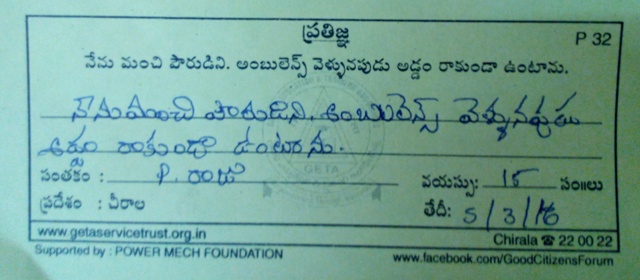 ప్రతిజ్ఞ
P 32
నేను మంచి పౌరుడిని. అంబులెన్స్ వెళ్ళునపుడు అడ్డం రాకుండా ఉంటాను.
నేను మంచి పౌరుడిని. అంబులెన్స్ వెళ్ళునప్పుడు
అడ్డం రాకుండా ఉంటాను.
సంతకం : P. రాజు వయస్సు: 15 సం॥లు
ప్రదేశం : చీరాల తేదీ: 5/3/16
www.getaservicetrust.org.in Chirala ☎ 22 00 22
Supported by : POWER MECH FOUNDATION www.facebook.com/GoodCitizensForum
GETA